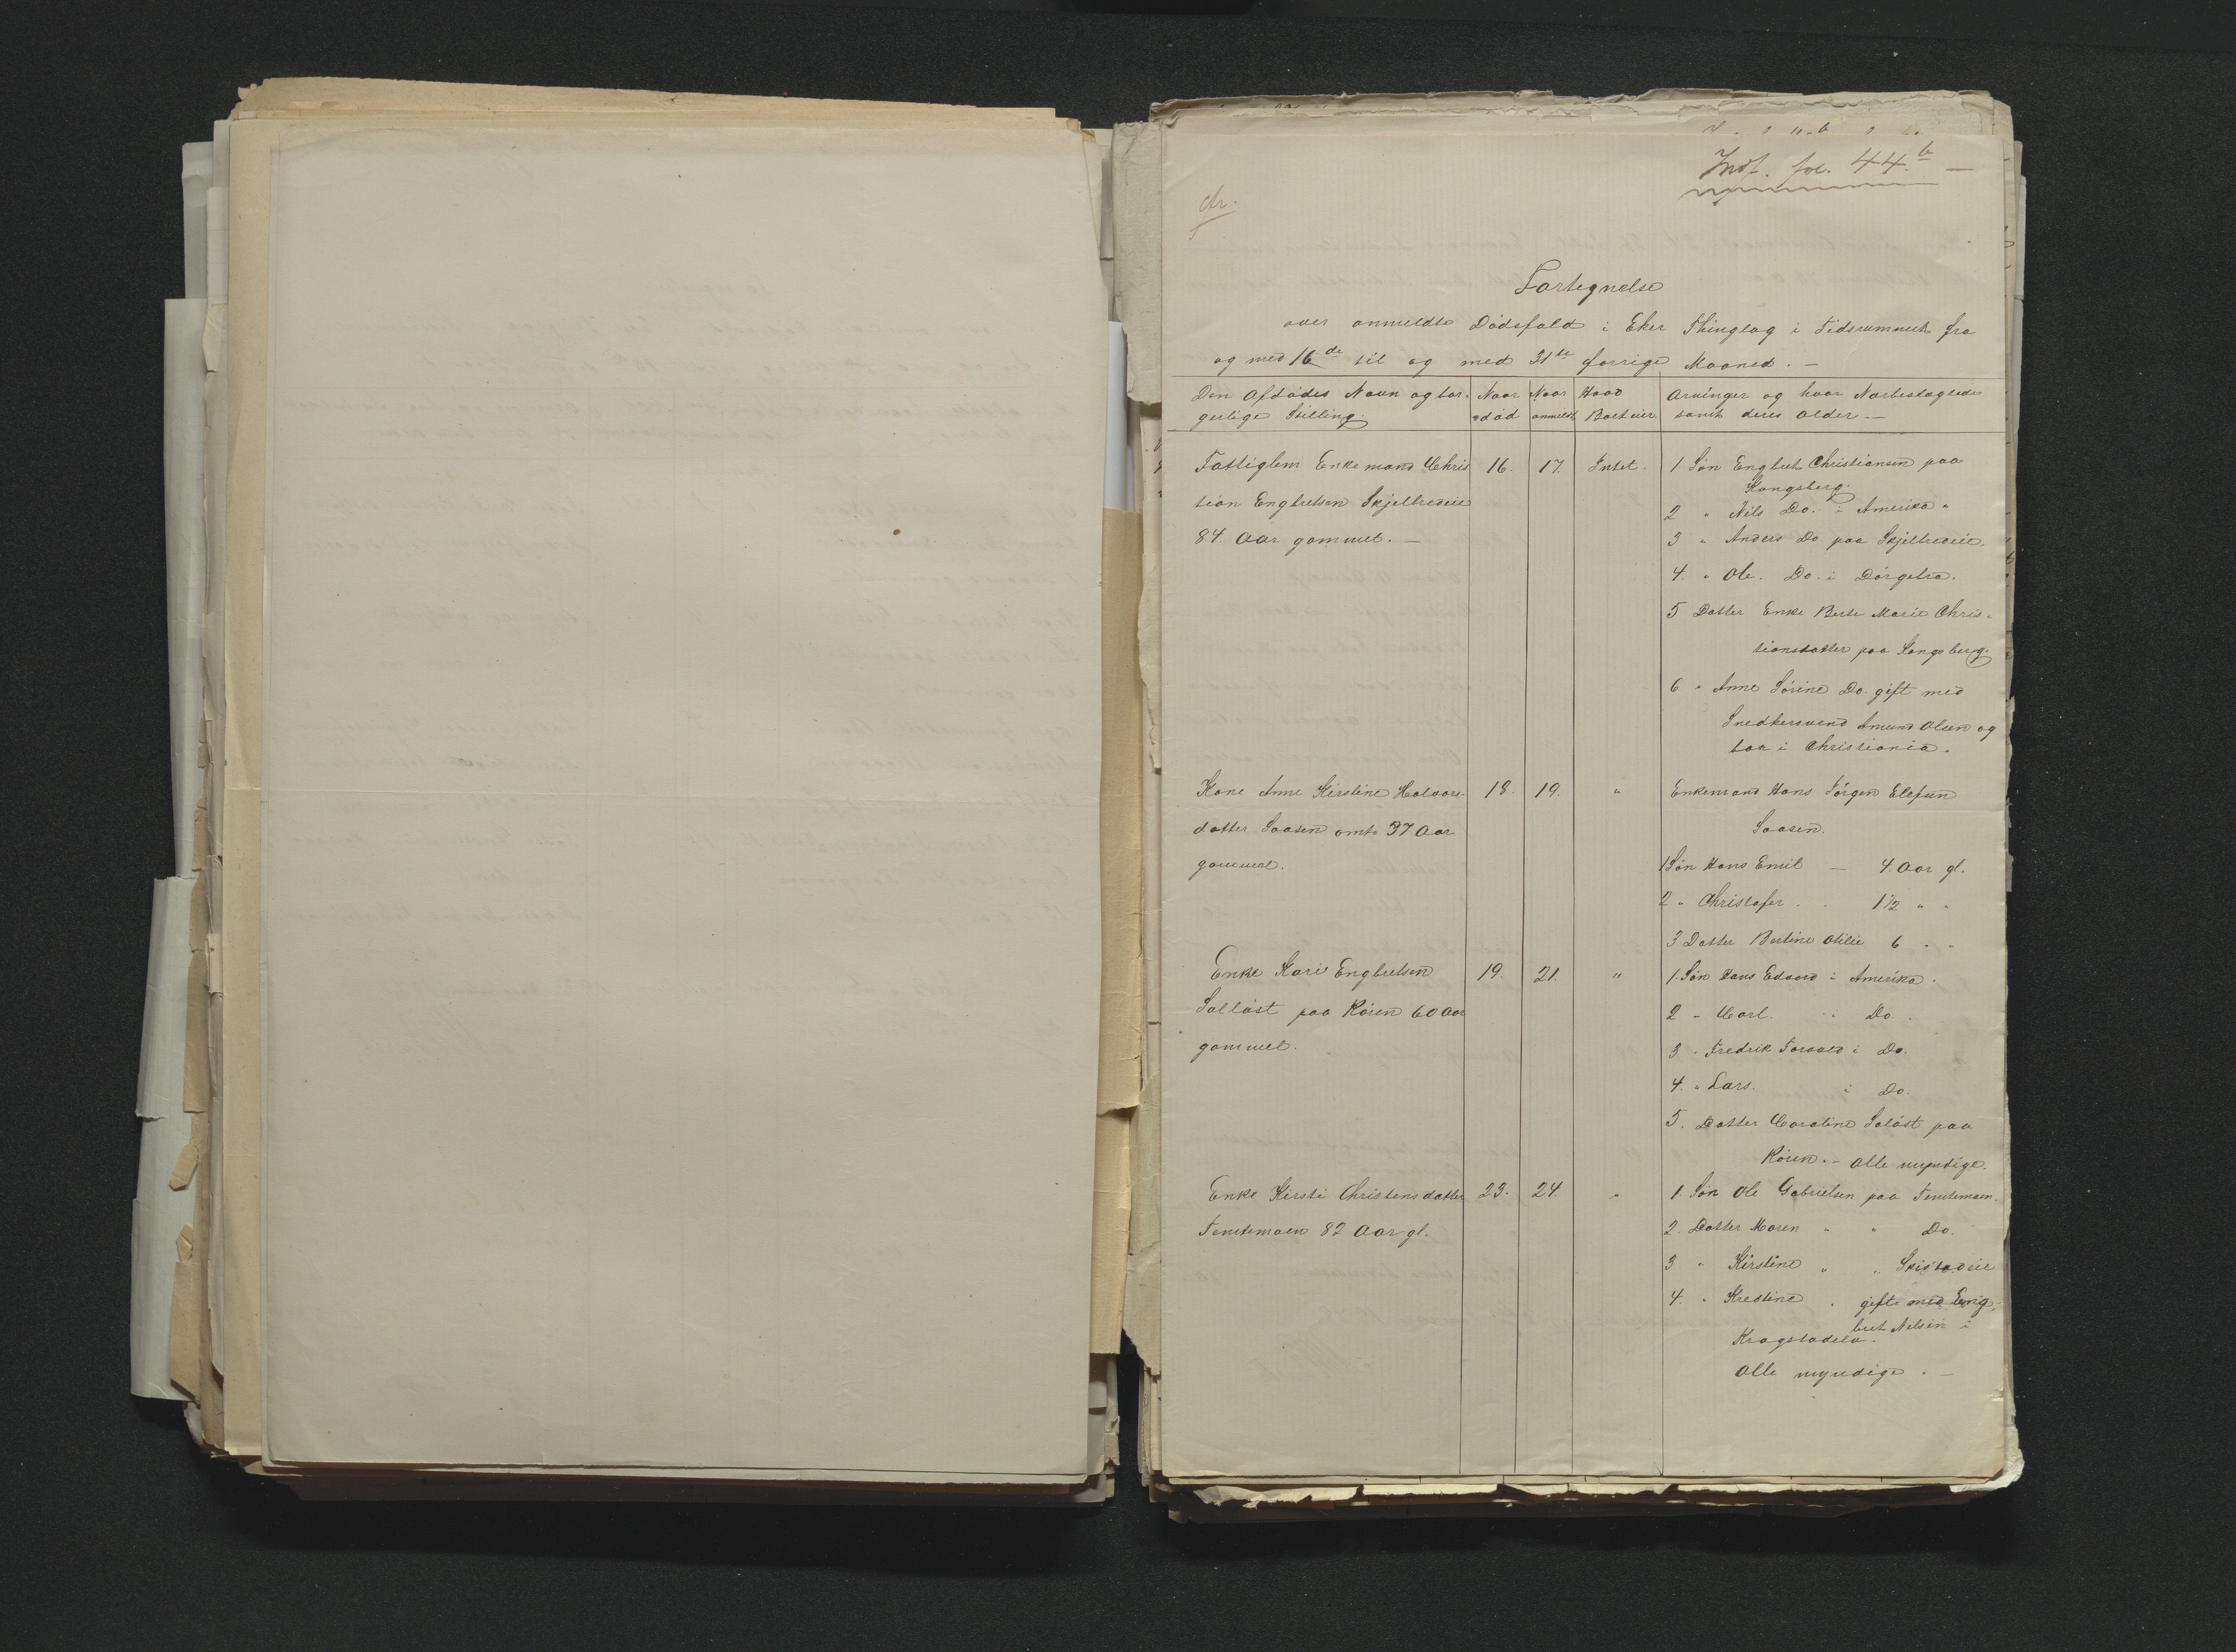 Indf. fol. 44.b —
Fortegnelse
over anmeldte Dødsfald i Eker Thinglag i Tidsrummet fra
og med 16de til og med 31te forrige Maaned. —
Den Afdødes Navn og bor- Naar Naar Hvad Arvinger og hvor Nærbeslægtede
gerlige Stilling. død anmeldt Boet eier samt deres Alder. —
Fattiglem Enkemand Chris 16. 17. Intet. 1. Søn Engbret Christiansen paa
Kongsberg.
tian Engbretsen Skjelbredeie
2 " Nils Do. i Amerika "
84 Aar gammel. — 3 " Anders Do. paa Skjelbredeie.
4. " Ole. Do. i
5 Datter Enke Berte Marie Chris-
tiansdatter paa Kongsberg.
6 " Anne Sørine Do. gift med
Snedkersvend Amund Olsen og
boa i Christiania.
Kone Anne Kirstine Halvors- 18. 19. " Enkemand Hans Jørgen Elefsen
datter Saasen omt. 37 Aar Saasen.
gammel. 1 Søn Hans Emil — 4. Aar gl.
2 " Christofer. " 1 1/2 " "
3 Datter Bertine Otilie 6 " "
Enke Kari Engbretsen 19. 21. " 1. Søn Hans Edvard i Amerika.
Solløst paa Røren 60 Aar 2 " Carl. i Do.
gammel. 3 " Fredrik Torvald i Do.
4. " Lars. i Do.
5. Datter Caroline Solløst paa
Røren. — Alle myndige.
Enke Kirsti Christensdatter 23. 24. " 1. Søn Ole Gabrielsen paa Temtemoen.
Temtemoen 82 Aar gl. 2. Datter Maren " " Do.
3 " Kirstine " " Skistadeie
4. " Kristine " gift med Eng-
bret Nilsen i
Kragstadelv.
Alle myndige. —